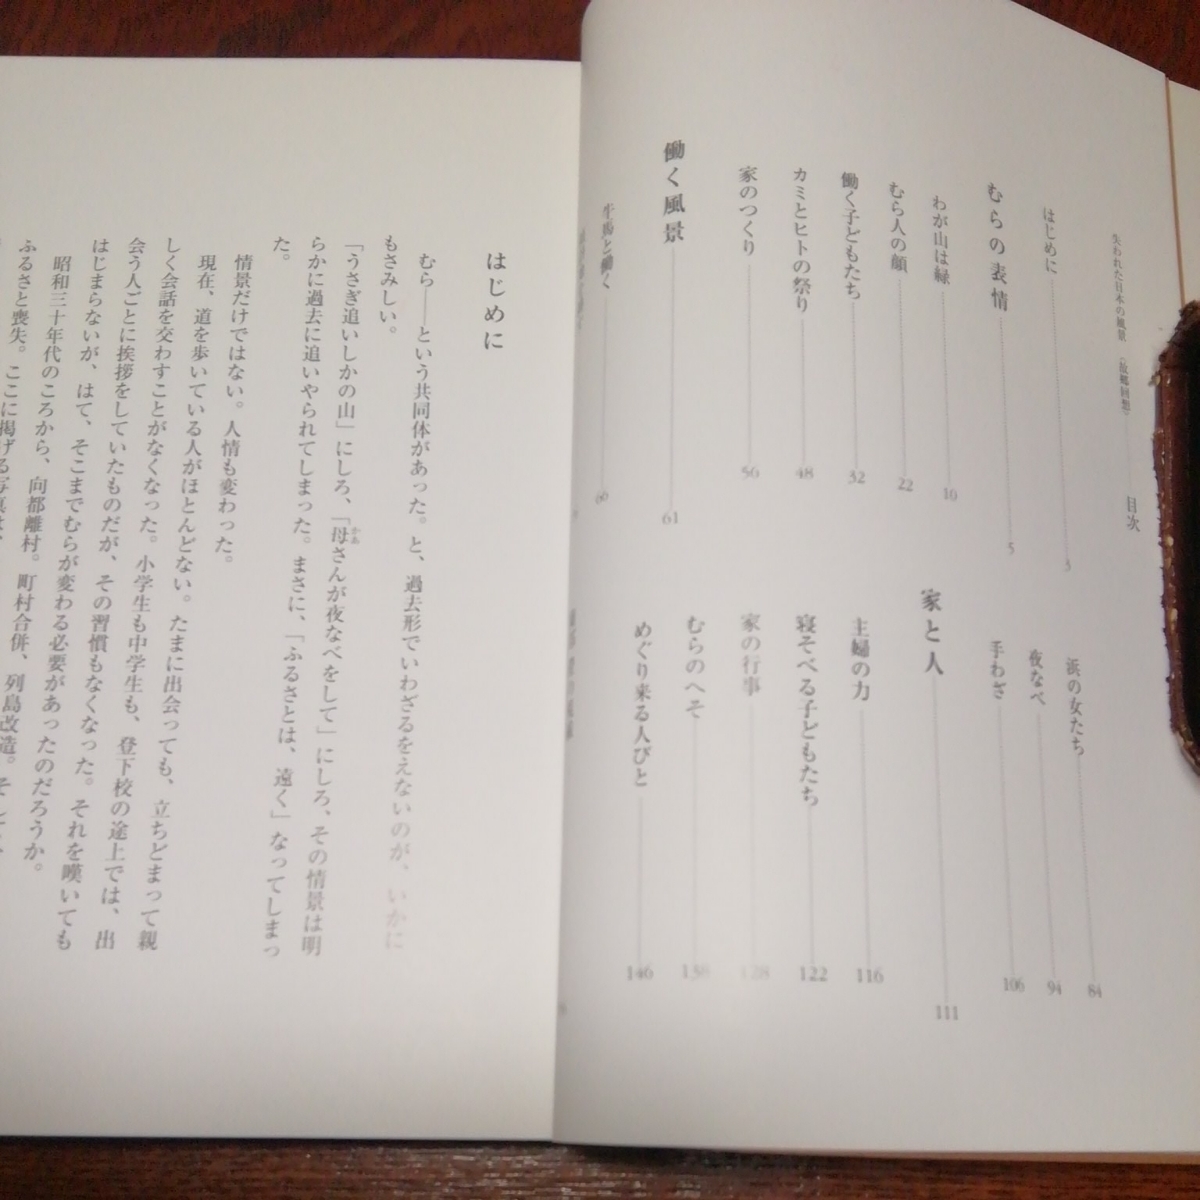 失われた日本の風景 故郷回想 目次
はじめに 3
むらの表情 5
わが山は緑 10
むら人の顔 22
働く子どもたち 32
カミとヒトの祭り 48
家のつくり 56
働く風景 61
牛馬と働く 66
浜の女たち 84
夜なべ 94
手わざ 106
家と人 111
主婦の力 116
寝そべる子どもたち 122
家の行事 128
むらのへそ 138
めぐり来る人びと 146
はじめに
むら——という共同体があった。と、過去形でいわざるをえないのが、いかに
もさみしい。
「うさぎ追いしかの山」にしろ、「母さんが夜なべをして」にしろ、その情景は明
らかに過去に追いやられてしまった。まさに、「ふるさとは、遠く」なってしまっ
た。
情景だけではない。人情も変わった。
現在、道を歩いている人がほとんどない。たまに出会っても、立ちどまって親
しく会話を交わすことがなくなった。小学生も中学生も、登下校の途上では、出
会う人ごとに挨拶をしていたものだが、その習慣もなくなった。それを嘆いても
はじまらないが、はて、そこまでむらが変わる必要があったのだろうか。
昭和三十年代のころから、向都離村。町村合併、列島改造。そして、
ふるさと喪失。ここに掲げる写真は、